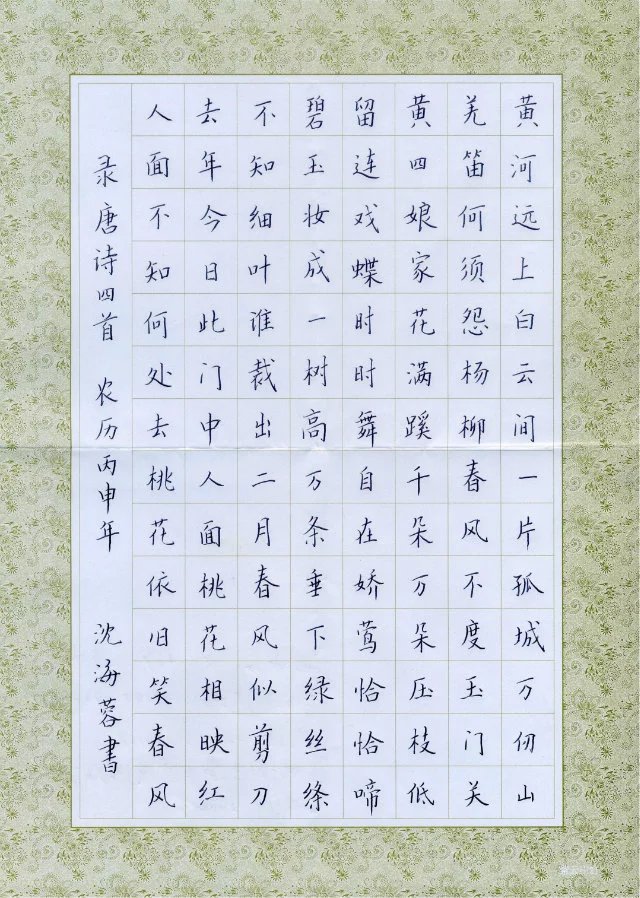 黄河远上白云间一片孤城万仞山
羌笛何须怨杨柳春风不度玉门关
黄四娘家花满蹊千朵万朵压枝低
留连戏蝶时时舞自在娇莺恰恰啼
碧玉妆成一树高万条垂下绿丝绦
不知细叶谁裁出二月春风似剪刀
去年今日此门中人面桃花相映红
人面不知何处去桃花依旧笑春风
录唐诗四首 农历丙申年 沈海蓉書